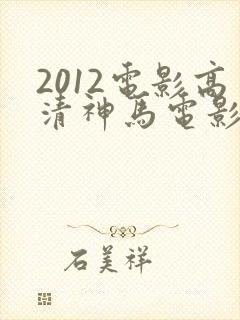 2012電影高
清神馬電影
石美祥